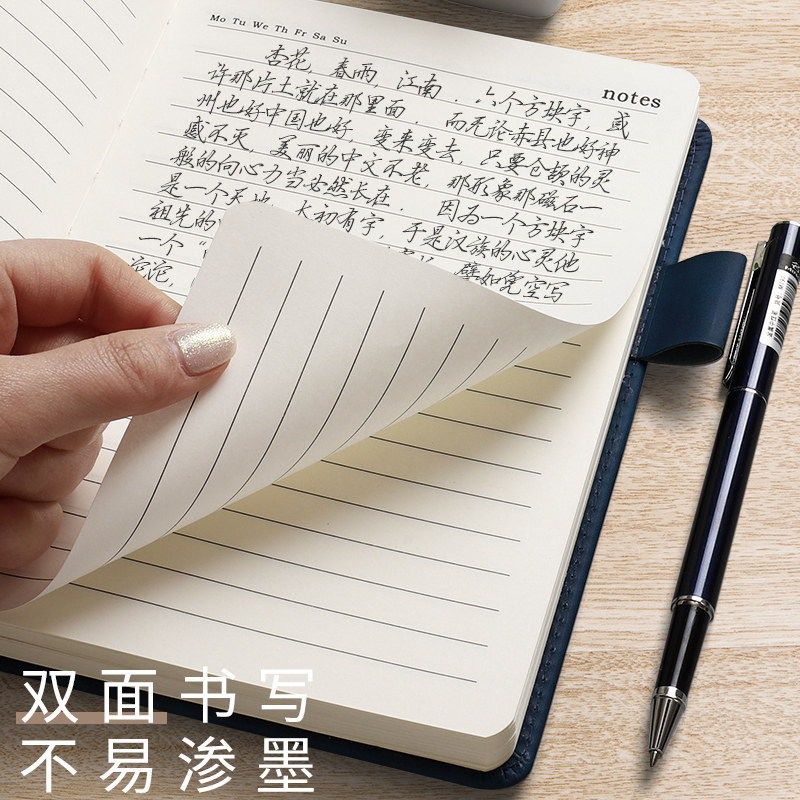 Mo Tu We Th Fr Sa Su
notes
杏花,春雨,江南.六个方块字,或
许那片土就在那里面.而无论赤县也好神
州也好中国也好,变来变去,只要仓颉的灵
感不灭,美丽的中文不老,那形象那磁石一
般的向心力当必然长在.因为一个方块字
是一个天地.太初有字,于是汉族的心灵他
祖先的 譬如凭空写
一个“
沱沱,
双面书写
不易渗墨